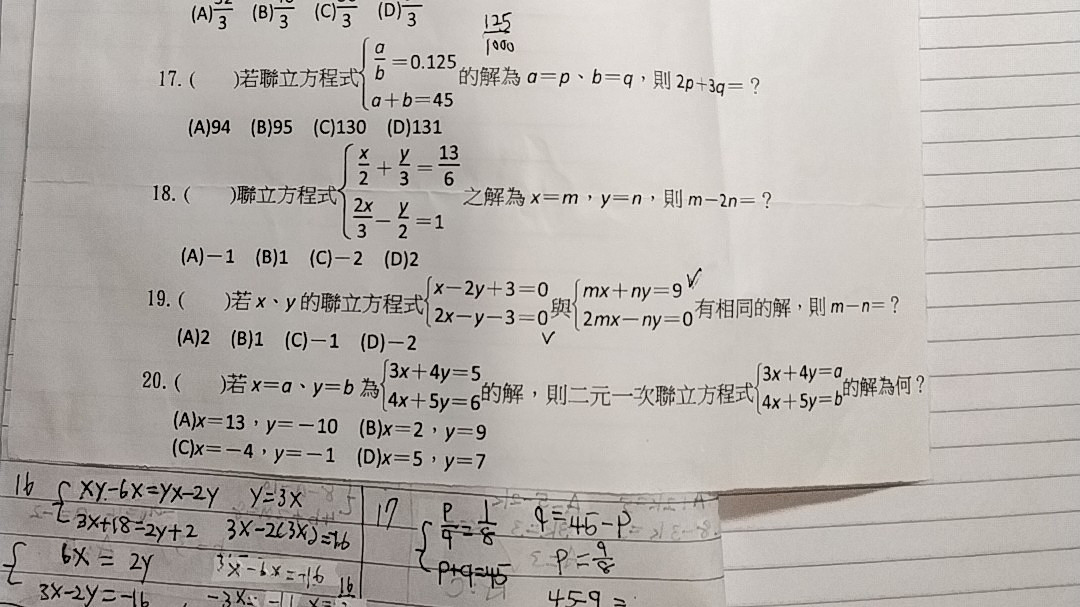 (A) /3 (B) /3 (C) /3 (D) /3
125/1000
17. ( )若聯立方程式{a/b=0.125
a+b=45 的解為 a=p、b=q，則 2p+3q=？
(A)94 (B)95 (C)130 (D)131
18. ( )聯立方程式{x/2+y/3=13/6
2x/3-y/2=1 之解為 x=m，y=n，則 m-2n=？
(A)-1 (B)1 (C)-2 (D)2
19. ( )若 x、y 的聯立方程式{x-2y+3=0
2x-y-3=0 與{mx+ny=9
2mx-ny=0 有相同的解，則 m-n=？
(A)2 (B)1 (C)-1 (D)-2
20. ( )若 x=a、y=b 為{3x+4y=5
4x+5y=6 的解，則二元一次聯立方程式{3x+4y=a
4x+5y=b 的解為何？
(A)x=13，y=-10 (B)x=2，y=9
(C)x=-4，y=-1 (D)x=5，y=7
16 { xy-6x=yx-2y y=3x
3x+18=2y+2 3x-2(3x)=-16
{ 6x=2y 3x-6x=-16
3x-2y=-16
17 { p/q=1/8 q=45-p
p+q=45 p=q/8
45-q=